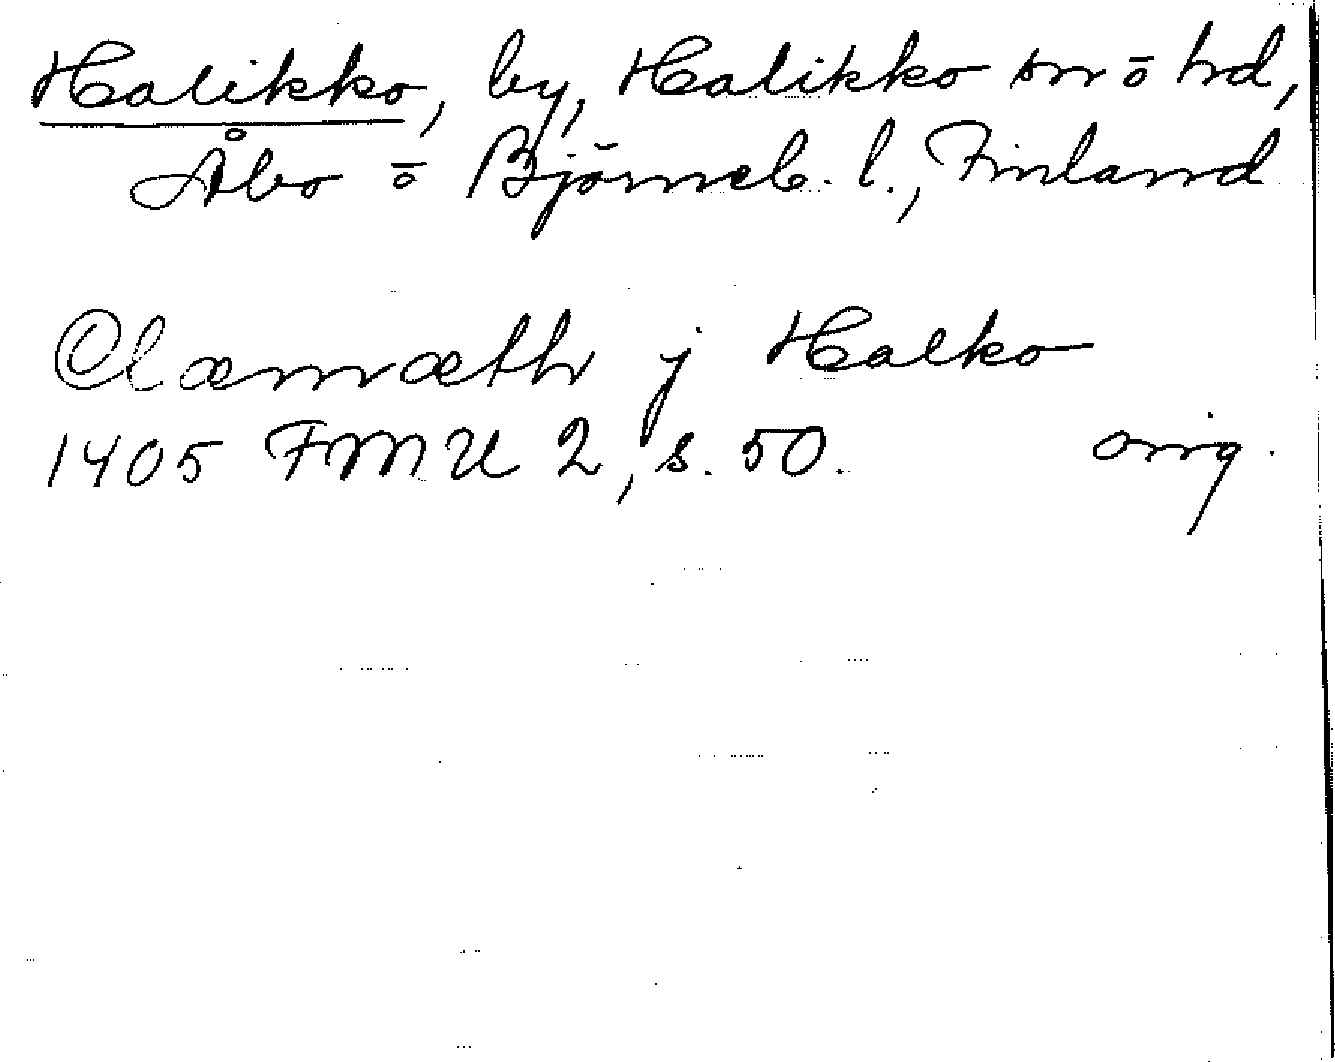 Halikko, by, Halikko sn o hd,
Åbo o Björneb. l., Finland
Clæmæth j Halko
1405 FMU 2, s. 50. orig.